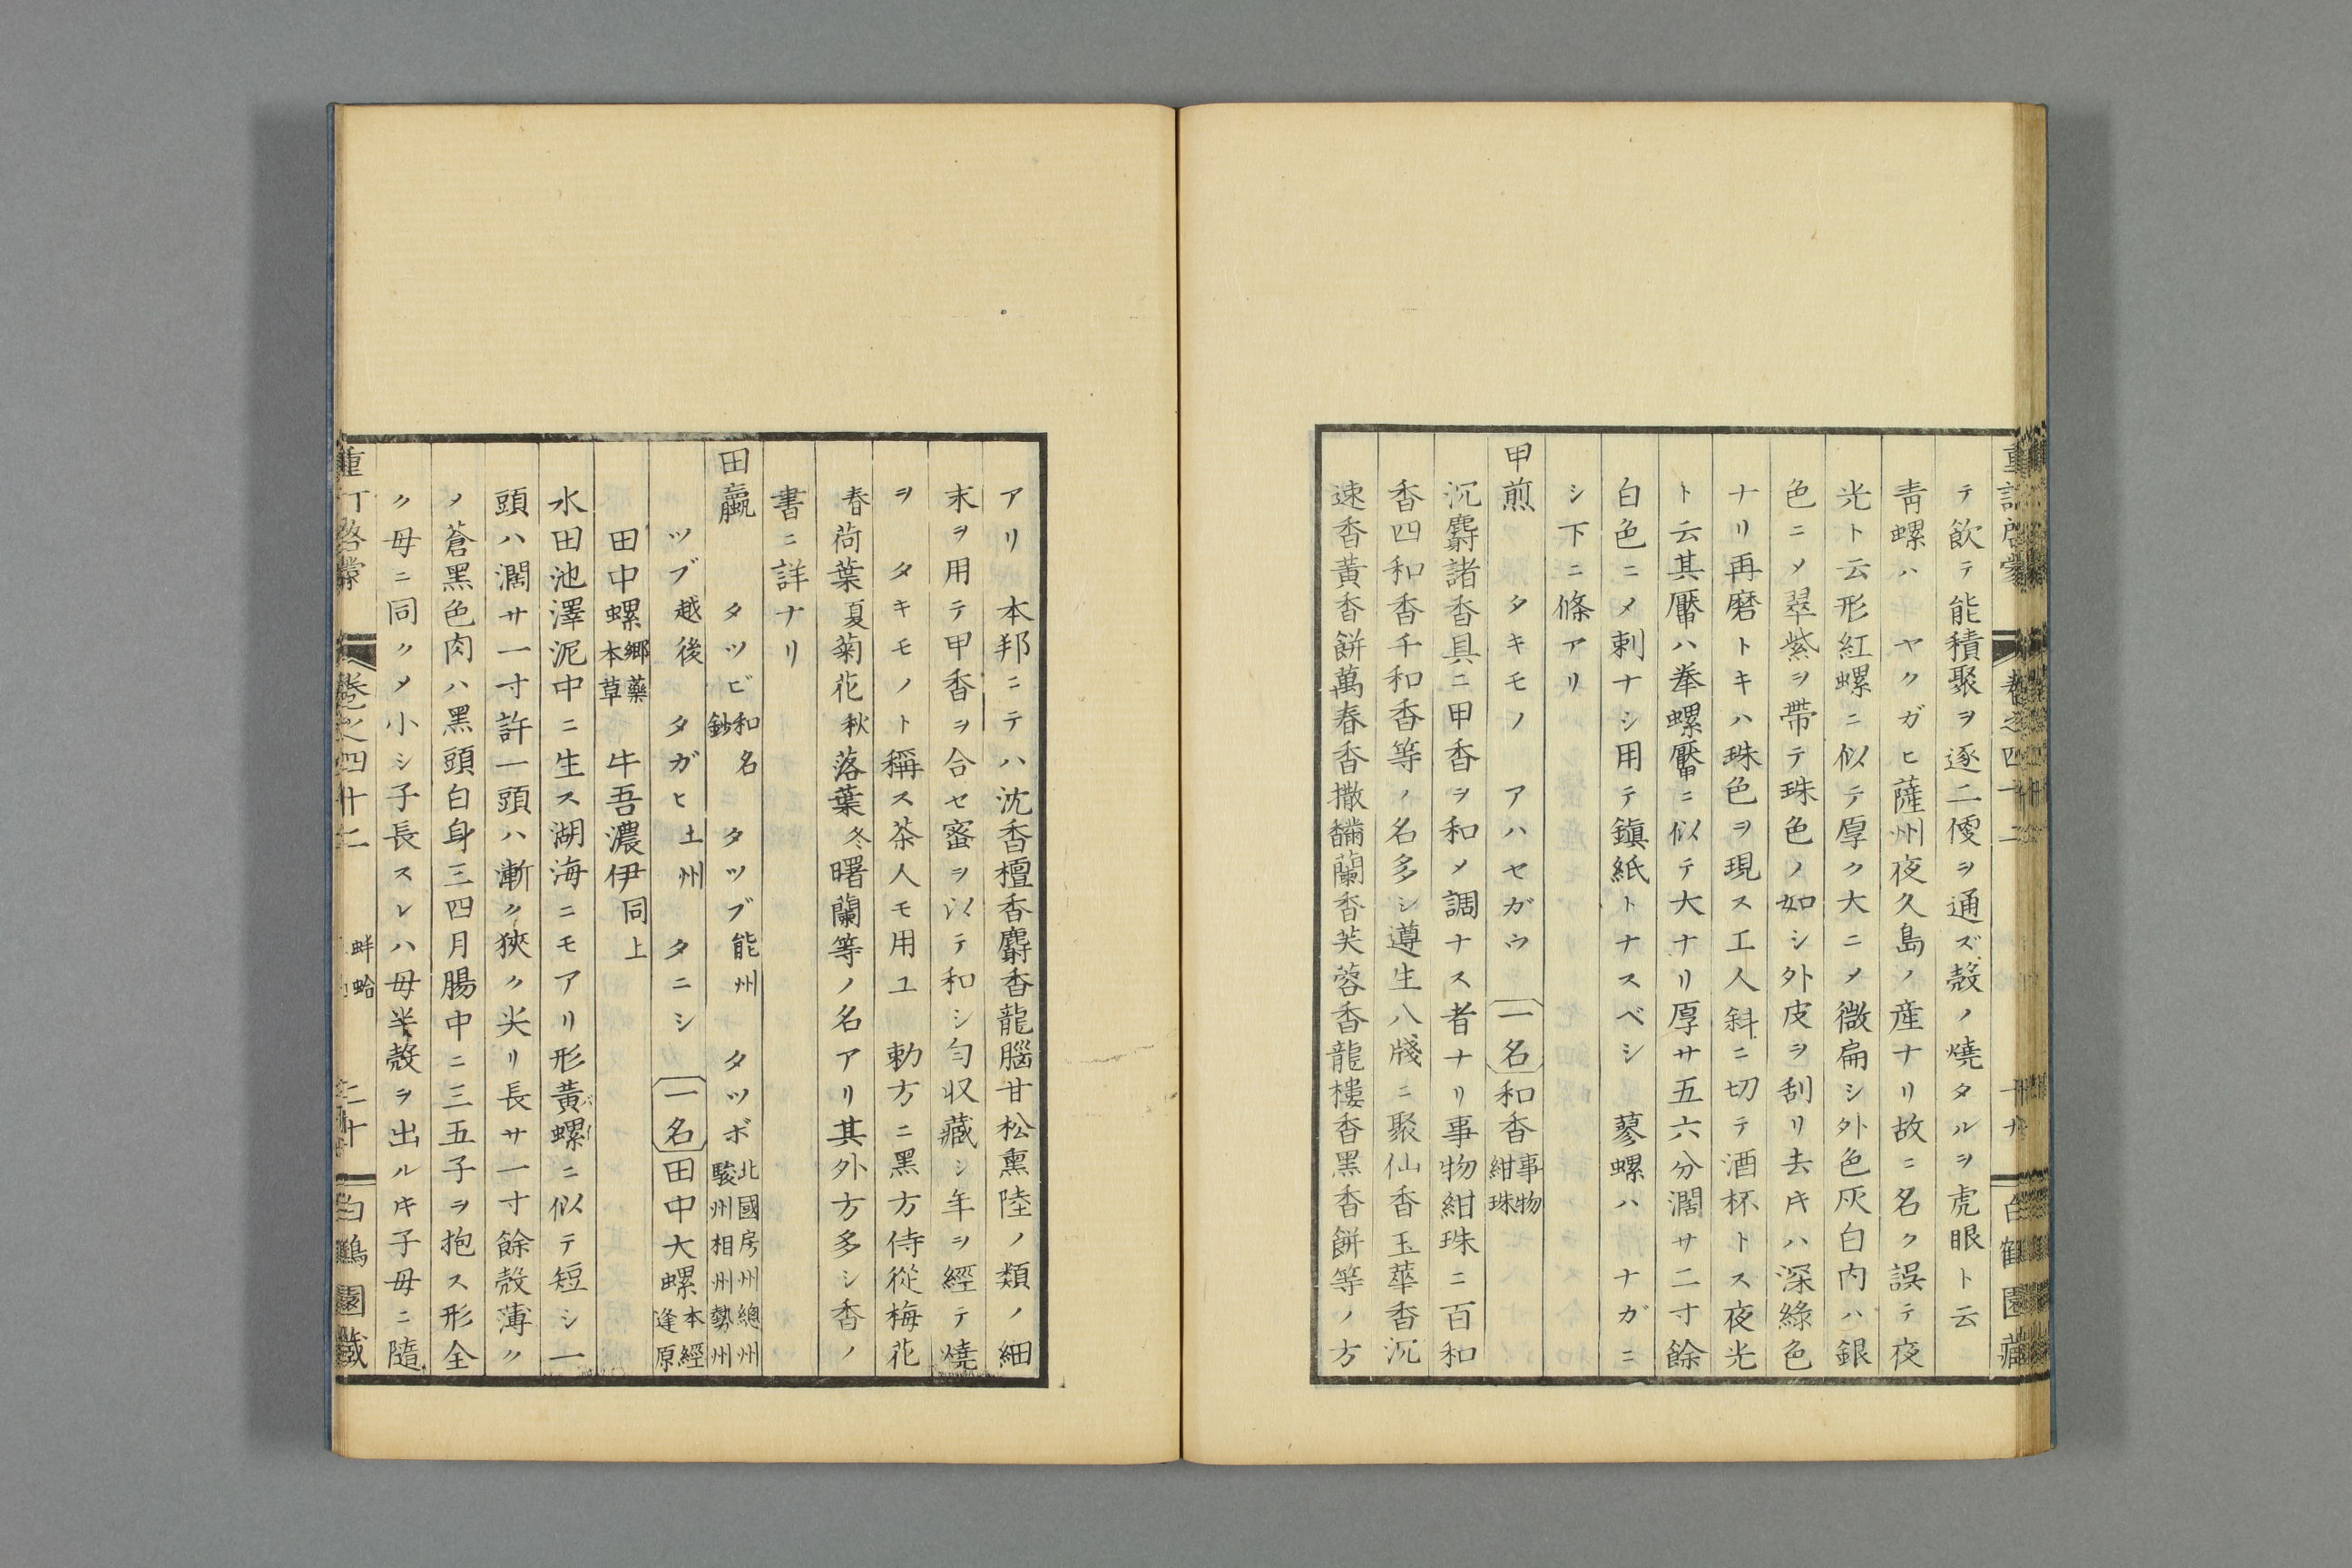 テ飲テ能積聚ヲ逐二便ヲ通ズ殼ノ燒タルヲ虎眼ト云
靑螺ハ ヤクガヒ薩州夜久島ノ産ナリ故ニ名ク誤テ夜
光ト云形紅螺ニ似テ厚ク大ニメ微扁シ外色灰白内ハ銀
色ニメ翠紫ヲ帶テ珠色ノ如シ外皮ヲ刮リ去キハ深綠色
ナリ再磨トキハ珠色ヲ現ス工人斜ニ切テ酒杯トス夜光
ト云其厴ハ拳螺厴ニ似テ大ナリ厚サ五六分濶サ二寸餘
白色ニメ刺ナシ用テ鎭紙トナスベシ 蓼螺ハ ナガニ
シ下ニ條アリ
甲煎 タキモノ アハセガウ 一名 和香 事物紺珠
沉麝諸香具ニ甲香ヲ和メ調ナス者ナリ事物紺珠ニ百和
香四和香千和香等ノ名多シ遵生八牋ニ聚仙香玉華香沉
速香黃香餠萬春香撒䪔蘭香芙蓉香龍樓香黑香餠等ノ方
アリ 本邦ニテハ沈香檀香麝香龍腦甘松熏陸ノ類ノ細
末ヲ用テ甲香ヲ合セ蜜ヲ以テ和シ匀収藏シ年ヲ經テ燒
ヲ タキモノト稱ス茶人モ用ユ 勅方ニ黑方侍從梅花
春荷葉夏菊花秋落葉冬曙蘭等ノ名アリ其外方多シ香ノ
書ニ詳ナリ
田蠃 タツビ 和名鈔 タツブ 能州 タツボ 北國房州總州駿州相州勢州
ツブ 越後 タガヒ 土州 タニシ 一名 田中大螺 本經逢原
田中螺 郷藥本草 牛吾濃伊 同上
水田池澤泥中ニ生ス湖海ニモアリ形黃螺ニ似テ短シ一
頭ハ濶サ一寸許一頭ハ漸ク狹ク尖リ長サ一寸餘殼薄ク
ノ蒼黑色肉ハ黑頭白身三四月腸中ニ三五子ヲ抱ス形全
ク母ニ同クメ小シ子長スレハ母半殼ヲ出ルキ子母ニ隨
重訂啓蒙 卷之四十二 蚌蛤 二十 白鶴園藏